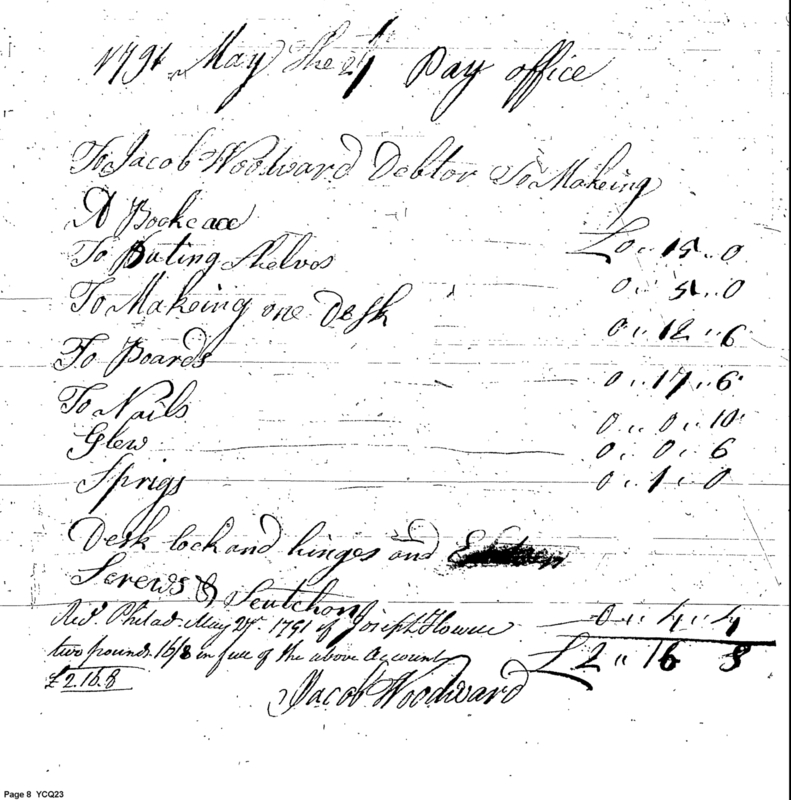 1791 May the 24 Pay office
To Jacob Woodward Debtor To Makeing
A Bookcace £0 " 15 " 0
To Puting Shelves 0 " 5 " 0
To Makeing one Desk 0 " 12 " 6
To Boards 0 " 17 " 6
To Nails 0 " 0 " 10
Glew 0 " 0 " 6
Sprigs 0 " 1 " 0
Desk lock and hinges and
Screws & Scutchon 0 " 4 " 4
Recd. Philad. May 27th 1791 of Joseph Howell
two pounds 16/8 in full of the above Account £2 " 16 8
£2.16.8
Jacob Woodward
Page 8 YCQ23